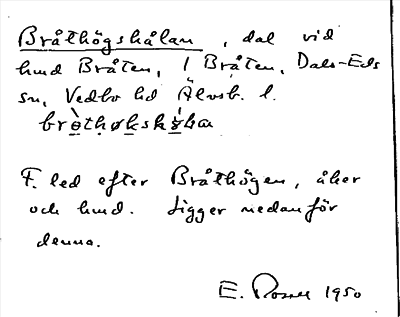 Bråthögshålan, dal vid
hmd Bråten, 1 Bråten, Dals-Eds
sn, Vedbo hd Älvsb. l.
bròthøkshó̱lan

F. led efter Bråthögen, åker
och hmd. Ligger nedanför
denna.

E. Rosell 1950